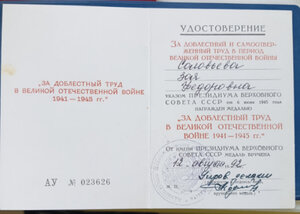 "ЗА ДОБЛЕСТНЫЙ ТРУД
В ВЕЛИКОЙ ОТЕЧЕСТВЕННОЙ ВОЙНЕ
1941—1945 гг."
АУ № 023626
УДОСТОВЕРЕНИЕ
"ЗА ДОБЛЕСТНЫЙ И САМООТВЕР-
ЖЕННЫЙ ТРУД В ПЕРИОД
ВЕЛИКОЙ ОТЕЧЕСТВЕННОЙ ВОЙНЫ
Соловьева
Зоя
Федоровна
УКАЗОМ ПРЕЗИДИУМА ВЕРХОВНОГО
СОВЕТА СССР от 6 июня 1945 года
НАГРАЖДЕН МЕДАЛЬЮ
"ЗА ДОБЛЕСТНЫЙ ТРУД
В ВЕЛИКОЙ ОТЕЧЕСТВЕННОЙ
ВОЙНЕ 1941—1945 гг."
От имени ПРЕЗИДИУМА ВЕРХОВНОГО
СОВЕТА СССР МЕДАЛЬ ВРУЧЕНА
12 август 92